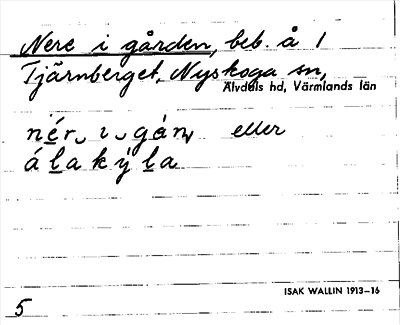 Nere i gården, beb. å 1
Tjärnberget, Nyskoga sn,
Älvdals hd, Värmlands län
nérᴗ ıᴗ gán, eller
álakýla
ISAK WALLIN 1913–16
5